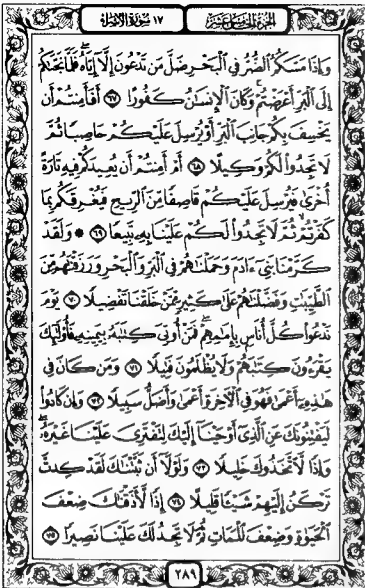 الجزء الخامس عشر ١٧ سورة الإسراء
وَإِذَا مَسَّكُمُ ٱلضُّرُّ فِي ٱلْبَحْرِ ضَلَّ مَن تَدْعُونَ إِلَّآ إِيَّاهُ فَلَمَّا نَجَّىٰكُمْ
إِلَى ٱلْبَرِّ أَعْرَضْتُمْ وَكَانَ ٱلْإِنسَٰنُ كَفُورًا ٦٧ أَفَأَمِنتُمْ أَن
يَخْسِفَ بِكُمْ جَانِبَ ٱلْبَرِّ أَوْ يُرْسِلَ عَلَيْكُمْ حَاصِبًا ثُمَّ
لَا تَجِدُوا۟ لَكُمْ وَكِيلًا ٦٨ أَمْ أَمِنتُمْ أَن يُعِيدَكُمْ فِيهِ تَارَةً
أُخْرَىٰ فَيُرْسِلَ عَلَيْكُمْ قَاصِفًا مِّنَ ٱلرِّيحِ فَيُغْرِقَكُم بِمَا
كَفَرْتُمْ ثُمَّ لَا تَجِدُوا۟ لَكُمْ عَلَيْنَا بِهِۦ تَبِيعًا ٦٩ * وَلَقَدْ
كَرَّمْنَا بَنِيٓ ءَادَمَ وَحَمَلْنَٰهُمْ فِي ٱلْبَرِّ وَٱلْبَحْرِ وَرَزَقْنَٰهُم مِّنَ
ٱلطَّيِّبَٰتِ وَفَضَّلْنَٰهُمْ عَلَىٰ كَثِيرٍ مِّمَّنْ خَلَقْنَا تَفْضِيلًا ٧٠ يَوْمَ
نَدْعُوا۟ كُلَّ أُنَاسٍ بِإِمَٰمِهِمْ فَمَنْ أُوتِيَ كِتَٰبَهُۥ بِيَمِينِهِۦ فَأُو۟لَٰٓئِكَ
يَقْرَءُونَ كِتَٰبَهُمْ وَلَا يُظْلَمُونَ فَتِيلًا ٧١ وَمَن كَانَ فِي
هَٰذِهِۦٓ أَعْمَىٰ فَهُوَ فِي ٱلْآخِرَةِ أَعْمَىٰ وَأَضَلُّ سَبِيلًا ٧٢ وَإِن كَادُوا۟
لَيَفْتِنُونَكَ عَنِ ٱلَّذِيٓ أَوْحَيْنَآ إِلَيْكَ لِتَفْتَرِيَ عَلَيْنَا غَيْرَهُۥ
وَإِذًا لَّٱتَّخَذُوكَ خَلِيلًا ٧٣ وَلَوْلَآ أَن ثَبَّتْنَٰكَ لَقَدْ كِدتَّ
تَرْكَنُ إِلَيْهِمْ شَيْـًٔا قَلِيلًا ٧٤ إِذًا لَّأَذَقْنَٰكَ ضِعْفَ
ٱلْحَيَوٰةِ وَضِعْفَ ٱلْمَمَاتِ ثُمَّ لَا تَجِدُ لَكَ عَلَيْنَا نَصِيرًا ٧٥
٢٨٩